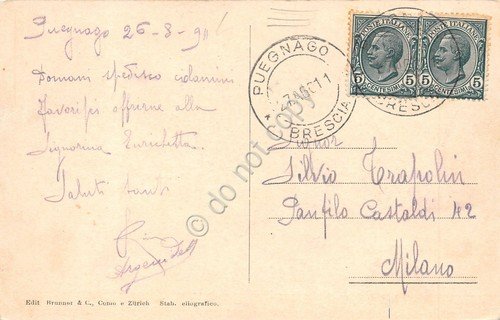 Puegnago 26-8-911
Domani spedisco
Favorisca offrirne alla
Signorina Enrichetta.
Saluti tanti
POSTE ITALIANE POSTE ITALIANE
5 CENTESIMI 5 5 CENTESIMI 5
PUEGNAGO
27 AGO 11
(BRESCIA)
BRESCIA
Signor
Silvio Trapolin
Panfilo Castaldi 42
Milano
do not copy
Edit Brunner & C., Como e Zürich Stab. eliografico.